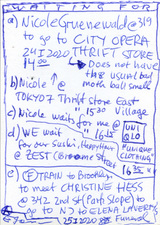 WAITING FOR
a) Nicole Gruenewald @ 319
to go to CITY OPERA
24 I 2020 THRIFT STORE
14:00 → Does not have
the usual bad
b) Nicole moth ball smell
TOKYO 7 Thrift store East
" 15:30 Village
c) Nicole waits for me @ UNI
d) WE wait " 16:15 QLO
for our sushi, happy hour UNIQUE
@ BEST (Broome Street CLOTHING
16:35
e) (F) TRAIN to Brooklyn
to meet CHRISTINE HESS
@ 342 2nd St (Park Slope) to
go to NJ to ELENA
25 I 2020 Funeral